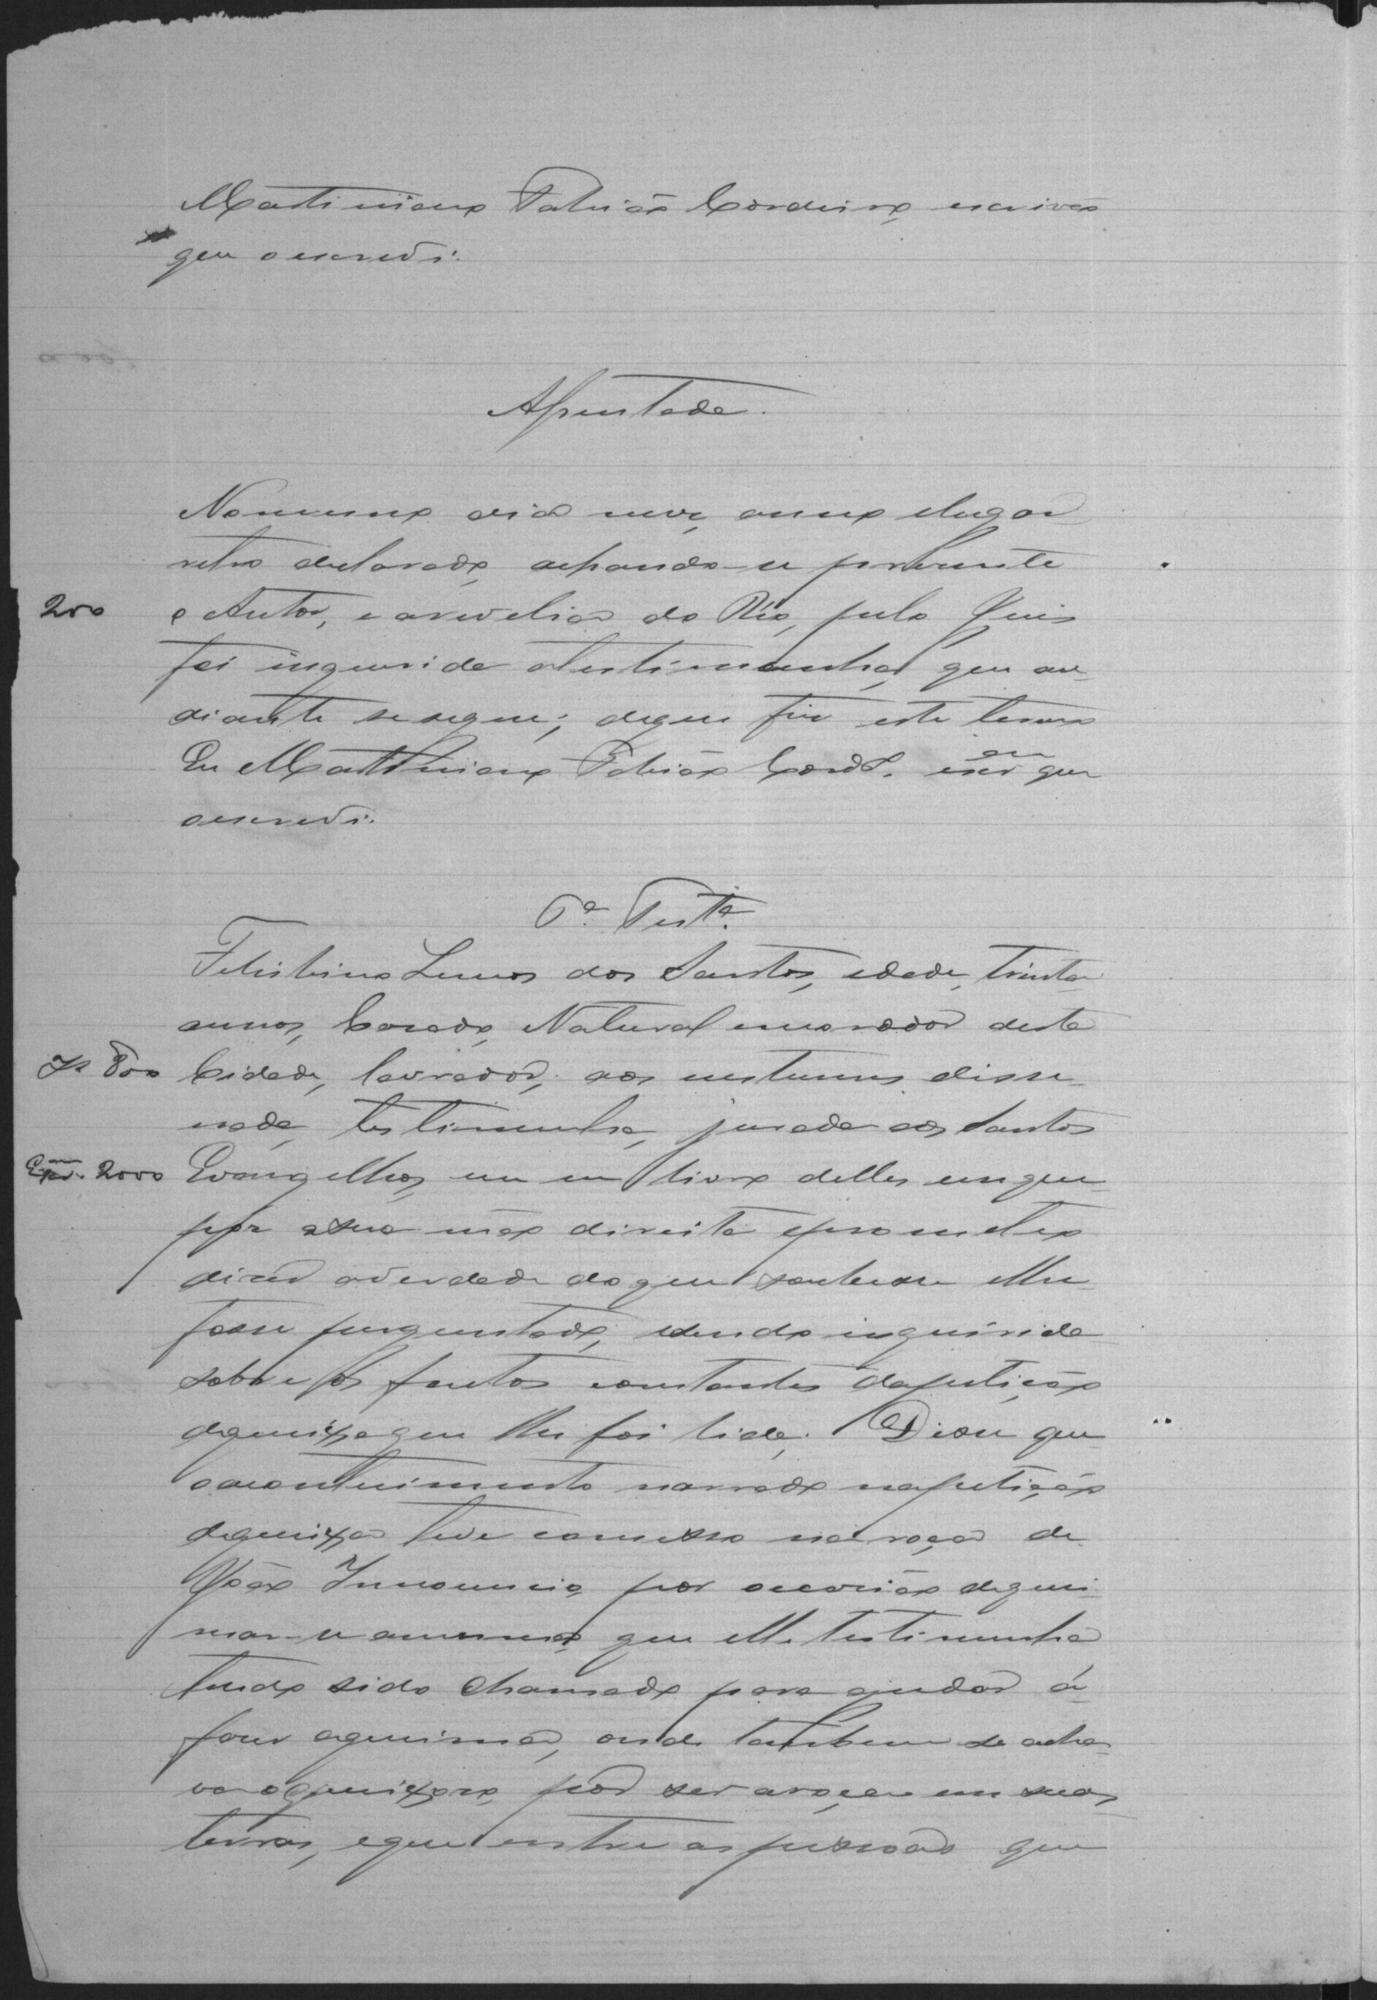 Martiniano Fabião Cordeiro, escrivão
que o escrevi.
Assentada.
No mesmo dia mez, anno e lugar
retro declarado, achando-se presente
200
o Autor, e a revelia do Réo, pelo Juis
foi inquerida a testimunha, que a-
diante se segue; do que fiz este termo
Eu Martiniano Fabião Cord.º escr.am que
o escrevi.
6ª Test.ª
Felisbino Lemos dos Santos, edade, trinta
annos, Casado, Natural e morador desta
Cidade, lavrador, aos custumes disse
nada, testimunha, jurada aos Santos
2000
Evangelhos, em um livro delles em que
pos a sua mão direita e prometeo
dizer a verdade do que soubesse e lhe
fosse perguntado, e sendo inquirida
sobre os factos constantes da petição
de queixa que lhe foi lida. Disse que
o acontecimento narrado na petição
de queixa teve comesso na roça de
João Innocencio, por occasião de quei-
mar-se a mesma, que elle testimunha
tendo sido chamado para ajudar á
faser a queima, onde tambem se acha-
va o queixoso, por ser a roça em suas
terras, e que entre as pessoas que